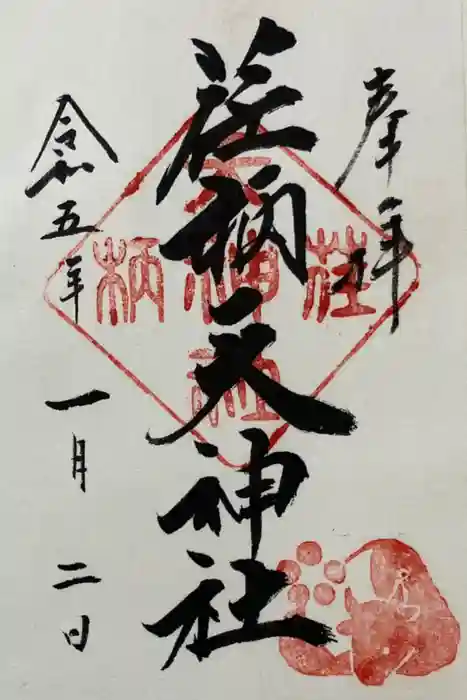 奉拝
荏柄天神社
令和五年一月二日
荏柄
天神社